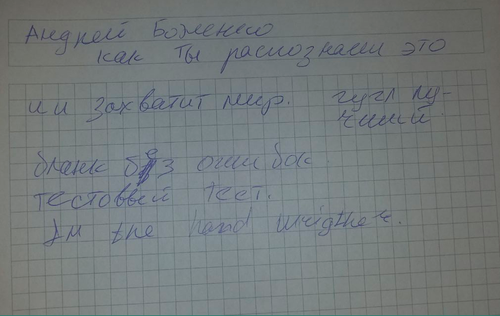 Андрей Боженко
как ты распознаеш это
ии захватит мир. гугл лу-
чший
бланк без ошибок
тестовый тест.
Im the hand wrigther.